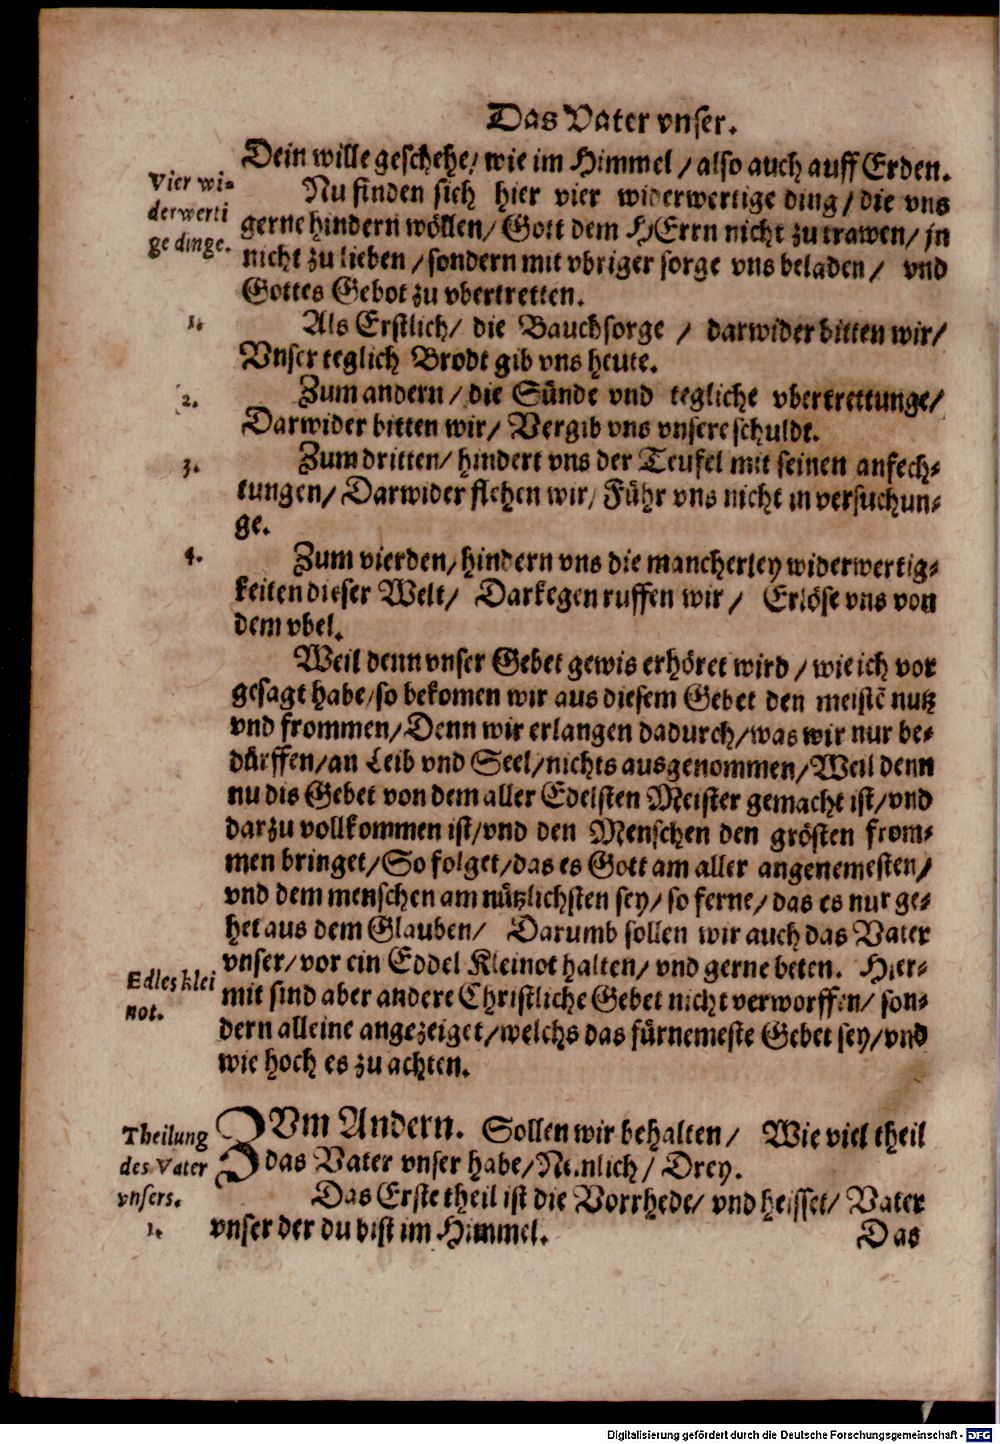 Das Vater vnser.
Dein wille geschehe / wie im Himmel / also auch auff Erden.
Vier wi-
derwerti
ge dinge.
Nu finden sich hier vier widerwertige ding / die vns
gerne hindern wöllen / Gott dem HErrn nicht zu trawen / jn
nicht zu lieben / sondern mit vbriger sorge vns beladen / vnd
Gottes Gebot zu vbertretten.
1.
Als Erstlich / die Bauchsorge / darwider bitten wir /
Vnser teglich Brodt gib vns heute.
2.
Zum andern / die Sünde vnd tegliche vbertrettunge /
Darwider bitten wir / Vergib vns vnsere schuldt.
3.
Zum dritten / hindert vns der Teufel mit seinen anfech-
tungen / Darwider flehen wir / Führ vns nicht in versuchun-
ge.
4.
Zum vierden / hindern vns die mancherley widerwertig-
keiten dieser Welt / Darkegen ruffen wir / Erlöse vns von
dem vbel.
Weil denn vnser Gebet gewis erhöret wird / wie ich vor
gesagt habe / so bekomen wir aus diesem Gebet den meistē nutz
vnd frommen / Denn wir erlangen dadurch / was wir nur be-
dürffen / an Leib vnd Seel / nichts ausgenommen / Weil denn
nu dis Gebet von dem aller Edelsten Meister gemacht ist / vnd
darzu vollkommen ist / vnd den Menschen den grösten from-
men bringet / So folget / das es Gott am aller angenemesten /
vnd dem menschen am nützlichsten sey / so ferne / das es nur ge-
het aus dem Glauben / Darumb sollen wir auch das Vater
vnser / vor ein Eddel Kleinot halten / vnd gerne beten. Hier-
Edles klei
not.
mit sind aber andere Christliche Gebet nicht verworffen / son-
dern alleine angezeiget / welchs das fürnemeste Gebet sey / vnd
wie hoch es zu achten.
Theilung
des Vater
vnsers.
ZUm Andern. Sollen wir behalten / Wie viel theil
das Vater vnser habe / Nemlich / Drey.
1.
Das Erste theil ist die Vorrhede / vnd heisset / Vater
vnser der du bist im Himmel.
Das
Digitalisierung gefördert durch die Deutsche Forschungsgemeinschaft - DFG